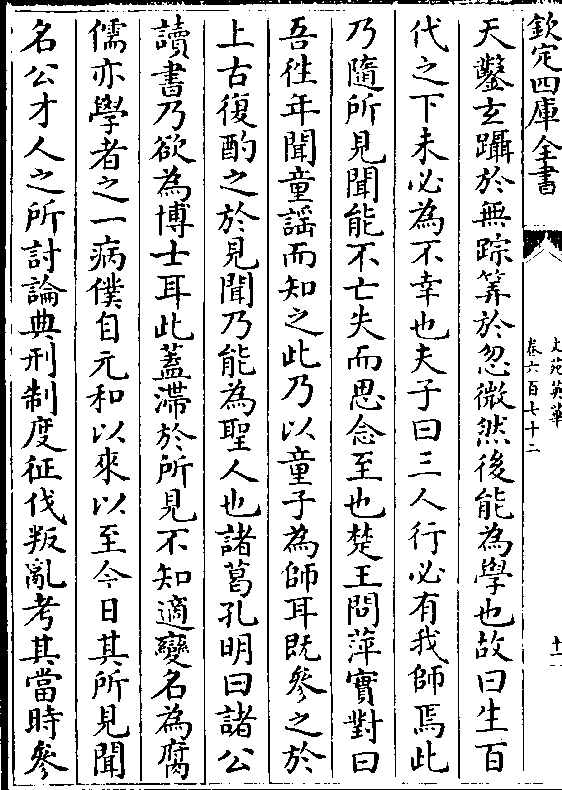 欽定四庫全書
文苑英華
卷六百七十二
十一
天鑿玄躡於無踪筭於忽微然後能為學也故曰生百
代之下未必為不幸也夫子曰三人行必有我師焉此
乃隨所見聞能不亡失而思念至也楚王問萍實對曰
吾徃年聞童謡而知之此乃以童子為師耳既參之於
上古復酌之於見聞乃能為聖人也諸葛孔明曰諸公
讀書乃欲為博士耳此蓋滯於所見不知適變名為腐
儒亦學者之一病僕自元和以來以至今日其所見聞
名公才人之所討論典刑制度征伐叛亂考其當時參